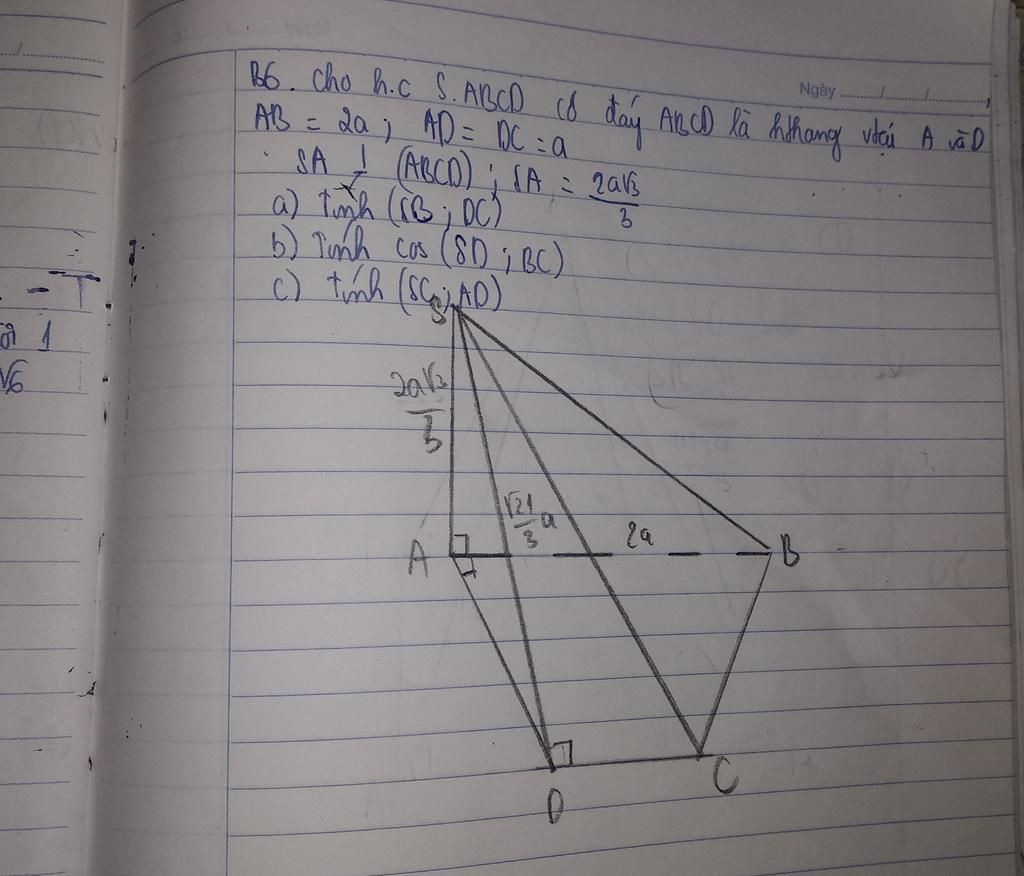 Ngày ......./......./.......
B6. Cho h.c S.ABCD có đáy ABCD là hthang vtại A và D
AB = 2a ; AD = DC = a
SA ⊥ (ABCD) ; SA = 2a√3/3
a) Tính (SB ; DC)
b) Tính cos (SD ; BC)
c) tính (SC ; AD)
S
2a√3/3
√21/3 a
2a
A
B
D
C
1
√6